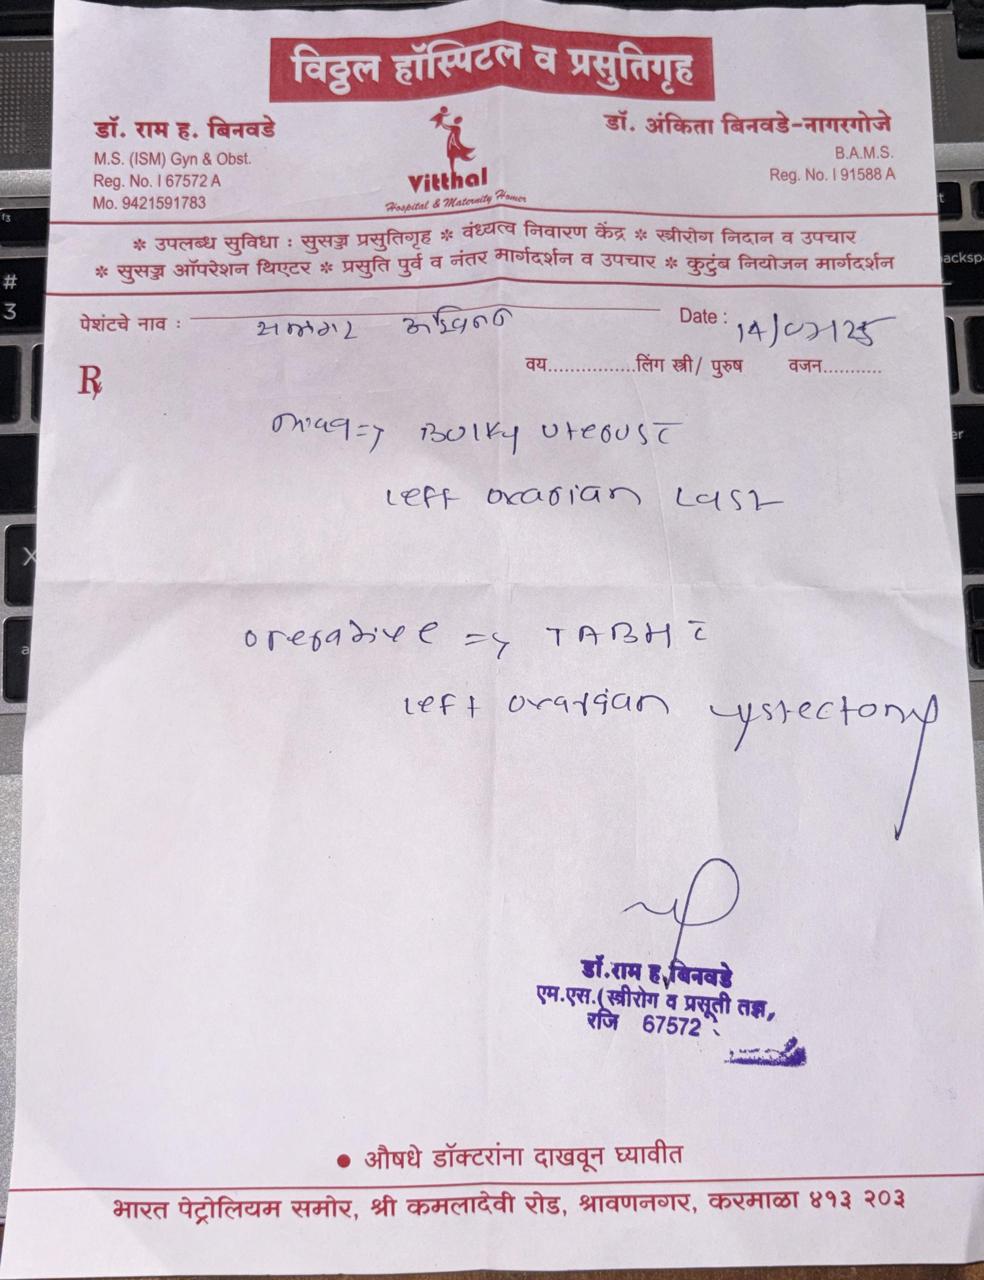 विठ्ठल हॉस्पिटल व प्रसुतिगृह
डॉ. राम ह. बिनवडे
M.S. (ISM) Gyn & Obst.
Reg. No. I 67572 A
Mo. 9421591783
Vitthal
Hospital & Maternity Homer
डॉ. अंकिता बिनवडे-नागरगोजे
B.A.M.S.
Reg. No. I 91588 A
* उपलब्ध सुविधा : सुसज्ज प्रसुतिगृह * वंध्यत्व निवारण केंद्र * स्त्रीरोग निदान व उपचार
* सुसज्ज ऑपरेशन थिएटर * प्रसुति पुर्व व नंतर मार्गदर्शन व उपचार * कुटुंब नियोजन मार्गदर्शन
पेशंटचे नाव :
Date : 14/07/25
वय................लिंग स्त्री/ पुरुष वजन...........
Rx
Bulky uterus c̄
left ovarian
=> TABH c̄
left ovarian cystectomy
डॉ.राम ह.बिनवडे
एम.एस.(स्त्रीरोग व प्रसूती तज्ञ,
रजि 67572
• औषधे डॉक्टरांना दाखवून घ्यावीत
भारत पेट्रोलियम समोर, श्री कमलादेवी रोड, श्रावणनगर, करमाळा ४१३ २०३